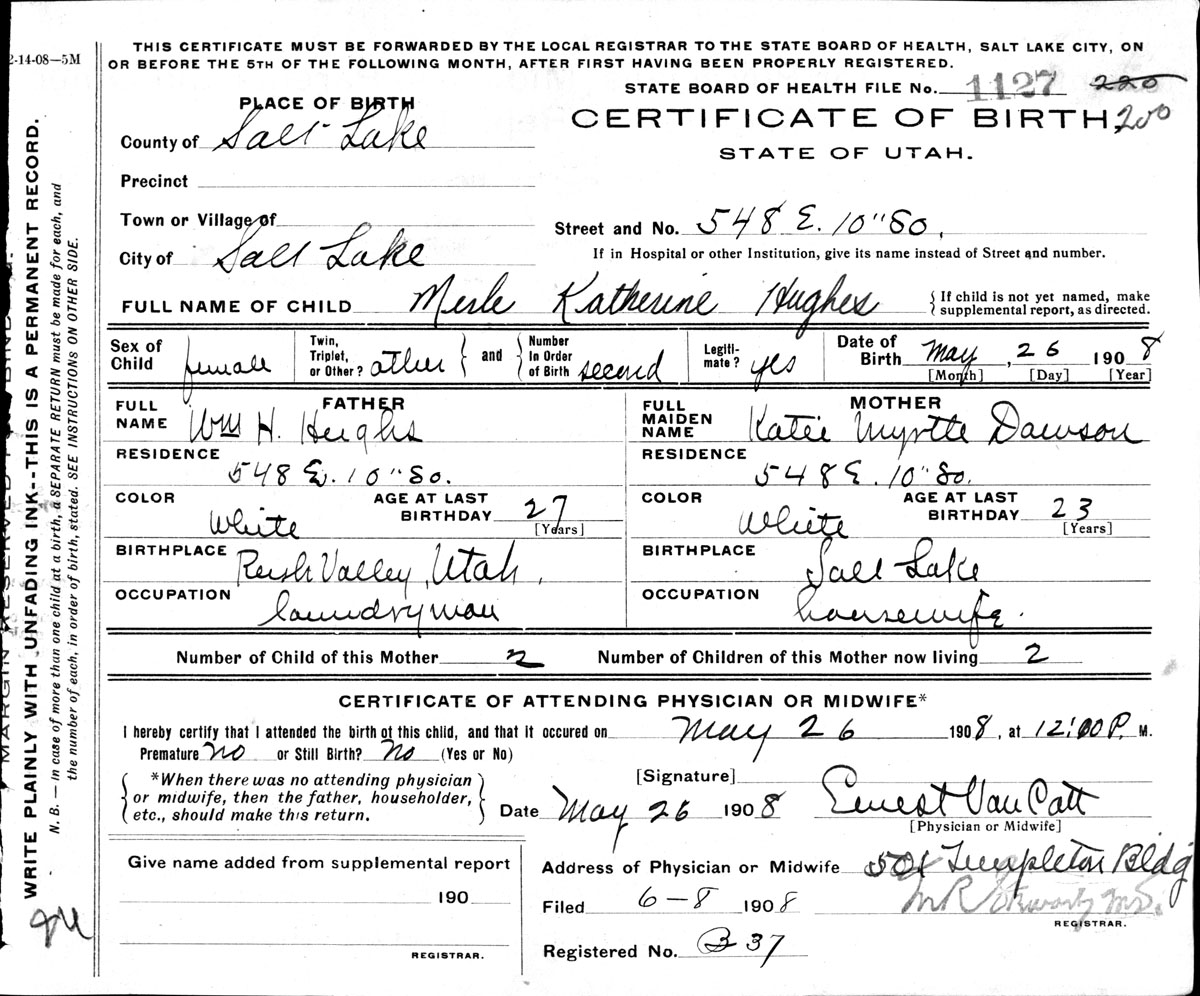 2-14-08—5M
THIS CERTIFICATE MUST BE FORWARDED BY THE LOCAL REGISTRAR TO THE STATE BOARD OF HEALTH, SALT LAKE CITY, ON
OR BEFORE THE 5TH OF THE FOLLOWING MONTH, AFTER FIRST HAVING BEEN PROPERLY REGISTERED.
STATE BOARD OF HEALTH FILE No. 1127 220
PLACE OF BIRTH
CERTIFICATE OF BIRTH 200
County of Salt Lake
STATE OF UTAH.
Precinct
Town or Village of
Street and No. 548 E. 10" So,
City of Salt Lake
If in Hospital or other Institution, give its name instead of Street and number.
FULL NAME OF CHILD Merle Katherine Hughes { If child is not yet named, make
supplemental report, as directed.
Sex of Child female Twin, Triplet, or Other? other } and { Number In Order of Birth second Legiti-mate? yes Date of Birth May, 26 1908
[Month] [Day] [Year]
FATHER
FULL NAME Wm H. Heighs
RESIDENCE
548 E. 10" So.
COLOR White AGE AT LAST BIRTHDAY 27
[Years]
BIRTHPLACE Rush Valley, Utah.
OCCUPATION laundryman
MOTHER
FULL MAIDEN NAME Katie Myrtle Dawson
RESIDENCE
548 E. 10" So.
COLOR White AGE AT LAST BIRTHDAY 23
[Years]
BIRTHPLACE Salt Lake
OCCUPATION housewife.
Number of Child of this Mother 2 Number of Children of this Mother now living 2
CERTIFICATE OF ATTENDING PHYSICIAN OR MIDWIFE*
I hereby certify that I attended the birth of this child, and that it occured on May 26 1908, at 12:00 P. M.
Premature No or Still Birth? No (Yes or No)
{ *When there was no attending physician
or midwife, then the father, householder,
etc., should make this return. }
[Signature]
Date May 26 1908 Ernest Van Cott
[Physician or Midwife]
Give name added from supplemental report
190
REGISTRAR.
Address of Physician or Midwife 501 Templeton Bldg
Filed 6-8 1908
REGISTRAR.
Registered No. B 37
MARGIN RESERVED
WRITE PLAINLY WITH UNFADING INK--THIS IS A PERMANENT RECORD.
N. B. — In case of more than one child at a birth, a SEPARATE RETURN must be made for each, and
the number of each, in order of birth, stated. SEE INSTRUCTIONS ON OTHER SIDE.